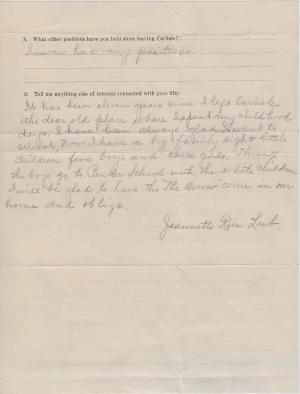 8. What other positions have you held since leaving Carlisle?
I never had any positions
9. Tell me anything else of interest connected with your life:
It has been eleven years since I left Carlisle
the dear old place where I spent my childhood
days. I have been always glad I went to
school, Now I have a big family eight little
children five boys and three girls. Three
the boys go to Pender School with the white children
I will be glad to have the "The Arrow" come in our
home and oblige.
Jeannette Rice Leib.